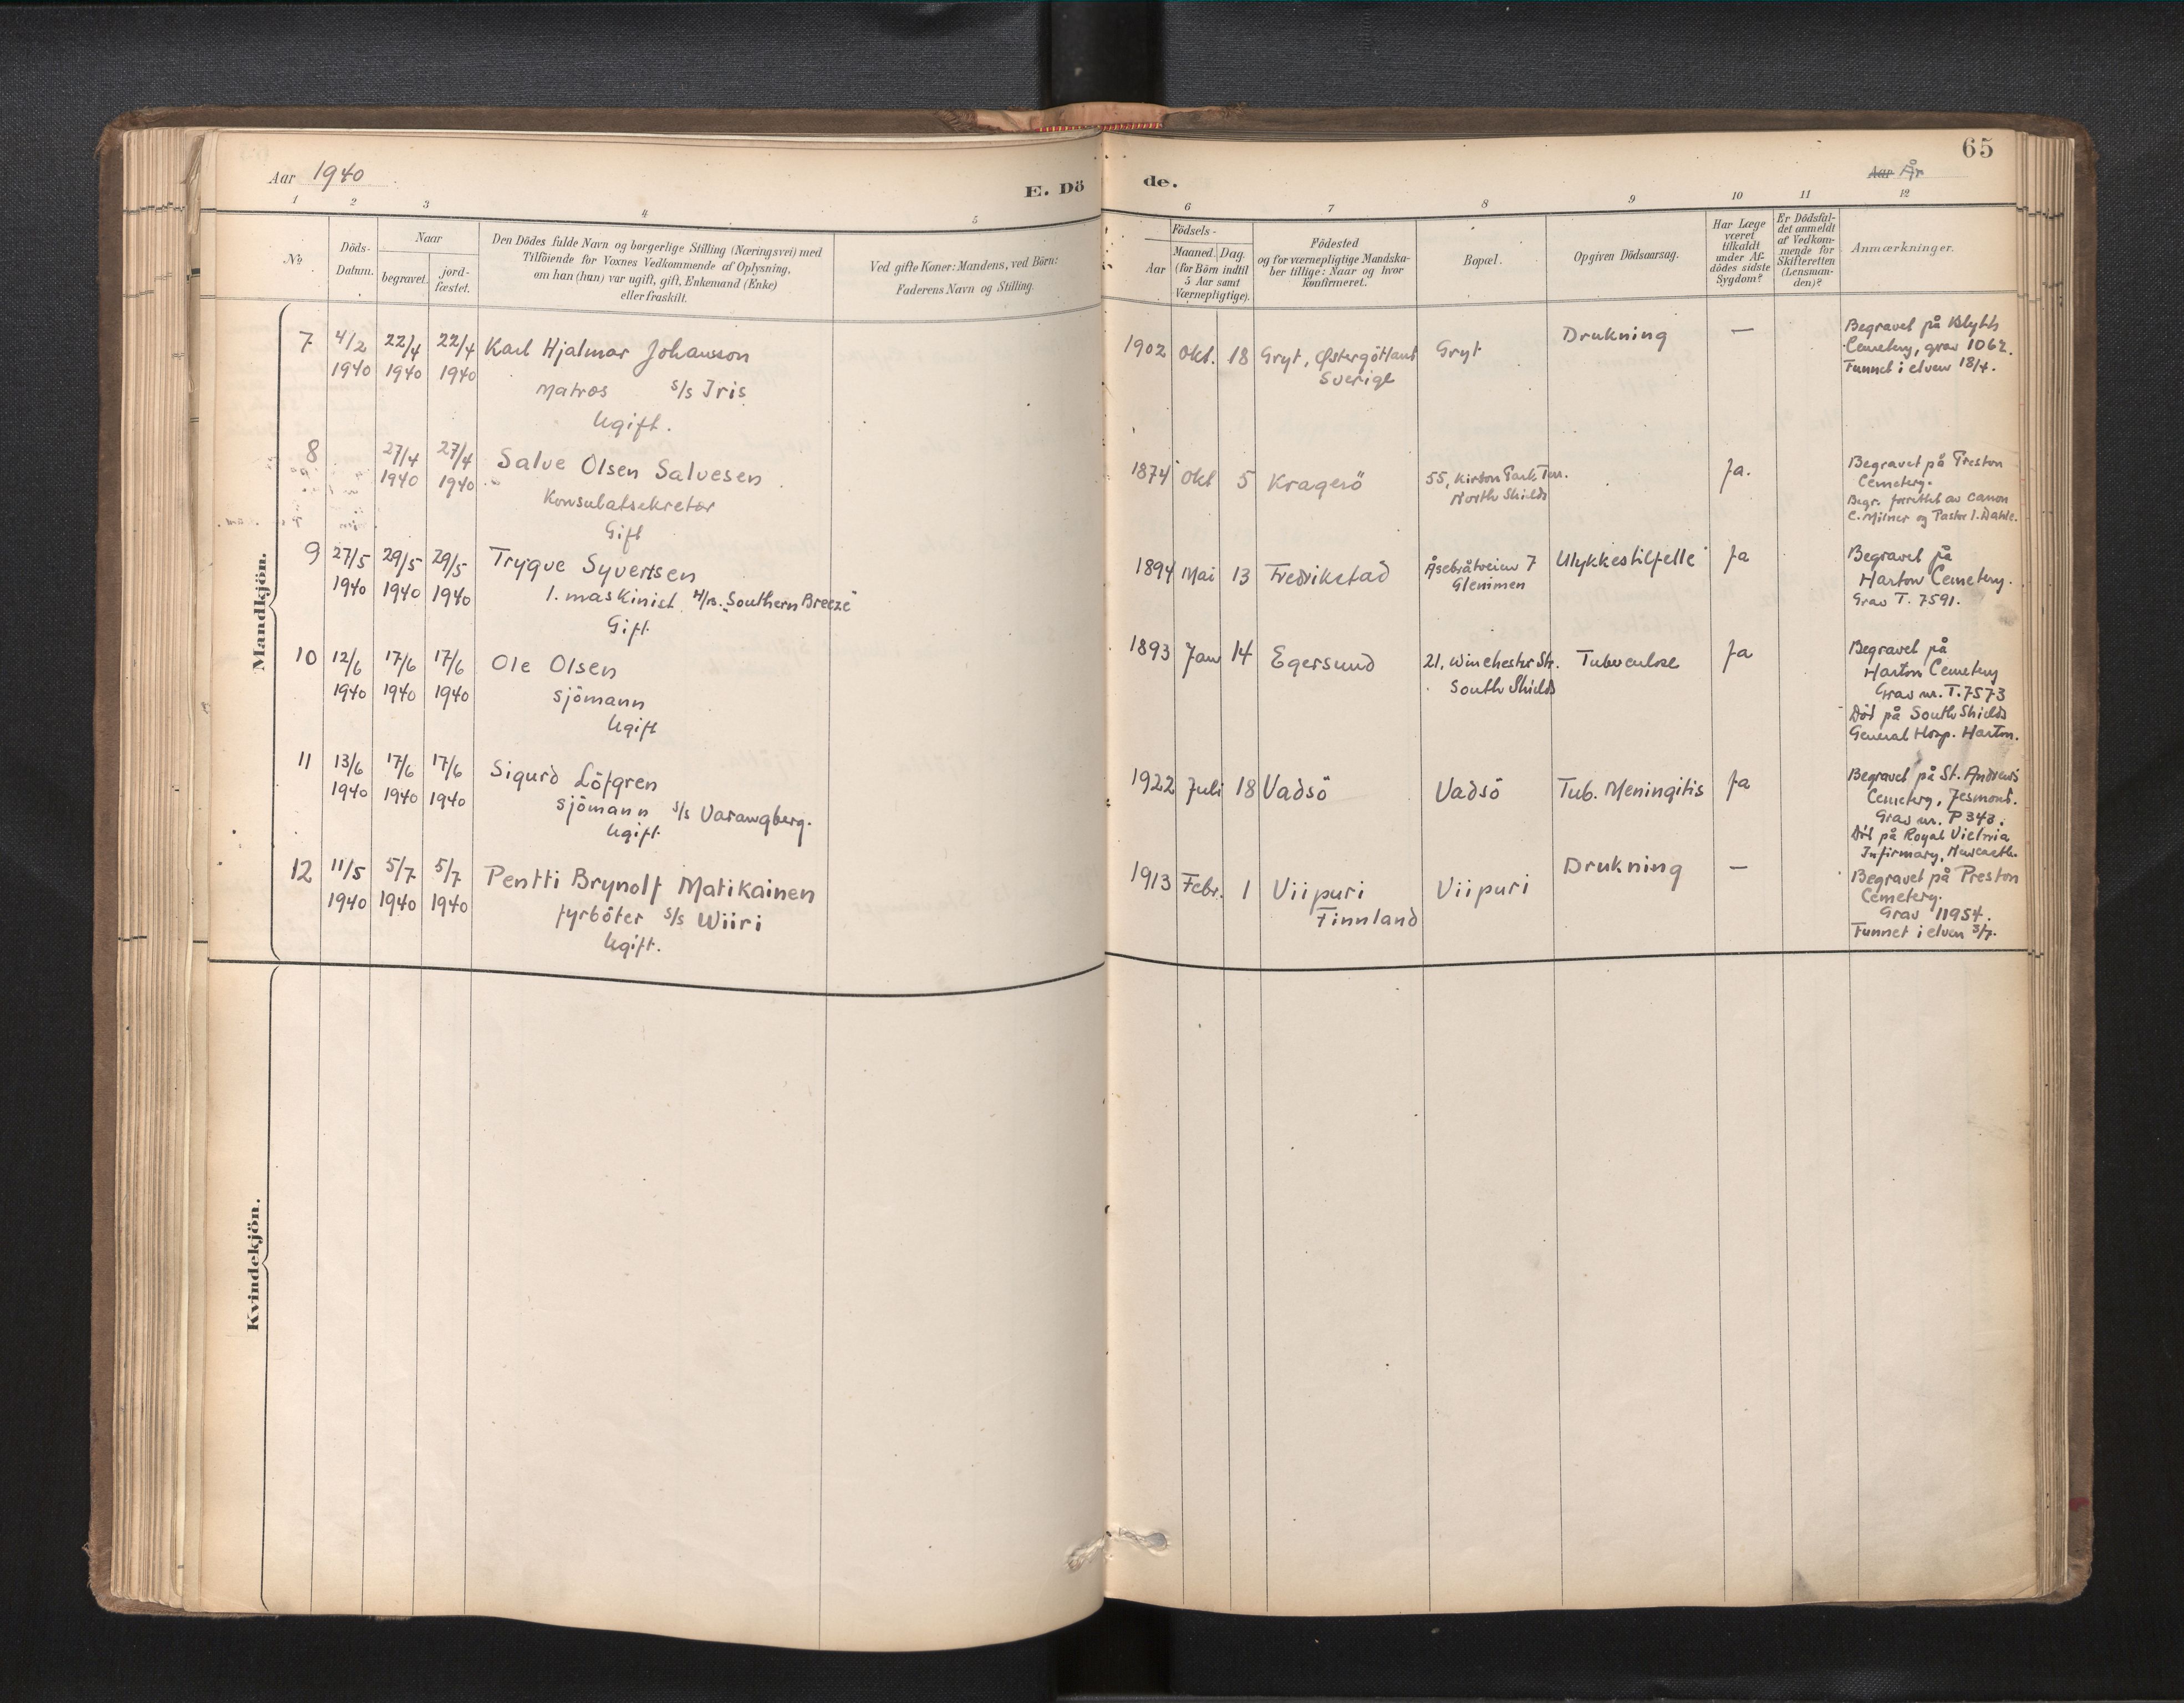 65
Aar 1940
E. Dö
de.
Aar År
1 2 3 4 5 6 7 8 9 10 11 12
No
Döds-
Datum.
Naar
begravet.
jord-
fæstet.
Den Dödes fulde Navn og borgerlige Stilling (Næringsvei) med
Tilföiende for Voxnes Vedkommende af Oplysning,
om han (hun) var ugift, gift, Enkemand (Enke)
eller fraskilt.
Ved gifte Koner: Mandens, ved Börn:
Faderens Navn og Stilling.
Födsels-
Aar
Maaned. Dag.
(for Börn indtil
5 Aar samt
Værnepligtige).
Födested
og for værnepligtige Mandska-
ber tillige: Naar og hvor
konfirmeret.
Bopæl.
Opgiven Dödsaarsag.
Har Læge
været
tilkaldt
under Af-
dödes sidste
Sygdom?
Er Dödsfal-
det anmeldt
af Vedkom-
mende for
Skifteretten
(Lensman-
den)?
Anmærkninger.
Mandkjön.
7 4/2 1940 22/4 1940 22/4 1940
Karl Hjalmar Johansson
Matros s/s Iris
Ugift.
1902 Okt. 18
Gryt, Østergötland
Sverige
Gryt
Drukning
—
Begravet på Blyth
Cemetery, grav 1062.
Funnet i elven 18/4.
8 27/4 1940 27/4 1940
Salve Olsen Salvesen
Konsulatsekretær
Gift
1874 Okt 5
Kragerö
55, Kirton Park Terr.
North Shields
Ja.
Begravet på Preston
Cemetery.
Begr. forrettet av Canon
C. Milner og Pastor I. Dahle.
9 27/5 1940 29/5 1940 29/5 1940
Trygve Syvertsen
1. maskinist H/B. "Southern Breeze"
Gift
1894 Mai 13
Fredrikstad
Åsebråtveien 7
Glemmen
Ulykkestilfelle
Ja
Begravet på
Harton Cemetery.
Grav T. 7591.
10 12/6 1940 17/6 1940 17/6 1940
Ole Olsen
sjömann
Ugift
1893 Jan 14
Egersund
21, Winchester Str.
South Shields
Tuberculose
Ja
Begravet på
Harton Cemetery
Grav nr. T.7573
Död på South Shields
General Hosp. Harton.
11 13/6 1940 17/6 1940 17/6 1940
Sigurd Löfgren
sjömann s/s Varangberg.
Ugift
1922 Juli 18
Vadsö
Vadsö
Tub. Meningitis
Ja
Begravet på St. Andrew's
Cemetery, Jesmond.
Grav nr. P 343.
Död på Royal Victoria
Infirmary, Newcastle.
12 11/5 1940 5/7 1940 5/7 1940
Pentti Brynolf Matikainen
fyrböter s/s Wiiri
Ugift.
1913 Febr. 1
Viipuri
Finnland
Viipuri
Drukning
—
Begravet på Preston
Cemetery.
Grav 11954.
Funnet i elven 3/7.
Kvindekjön.